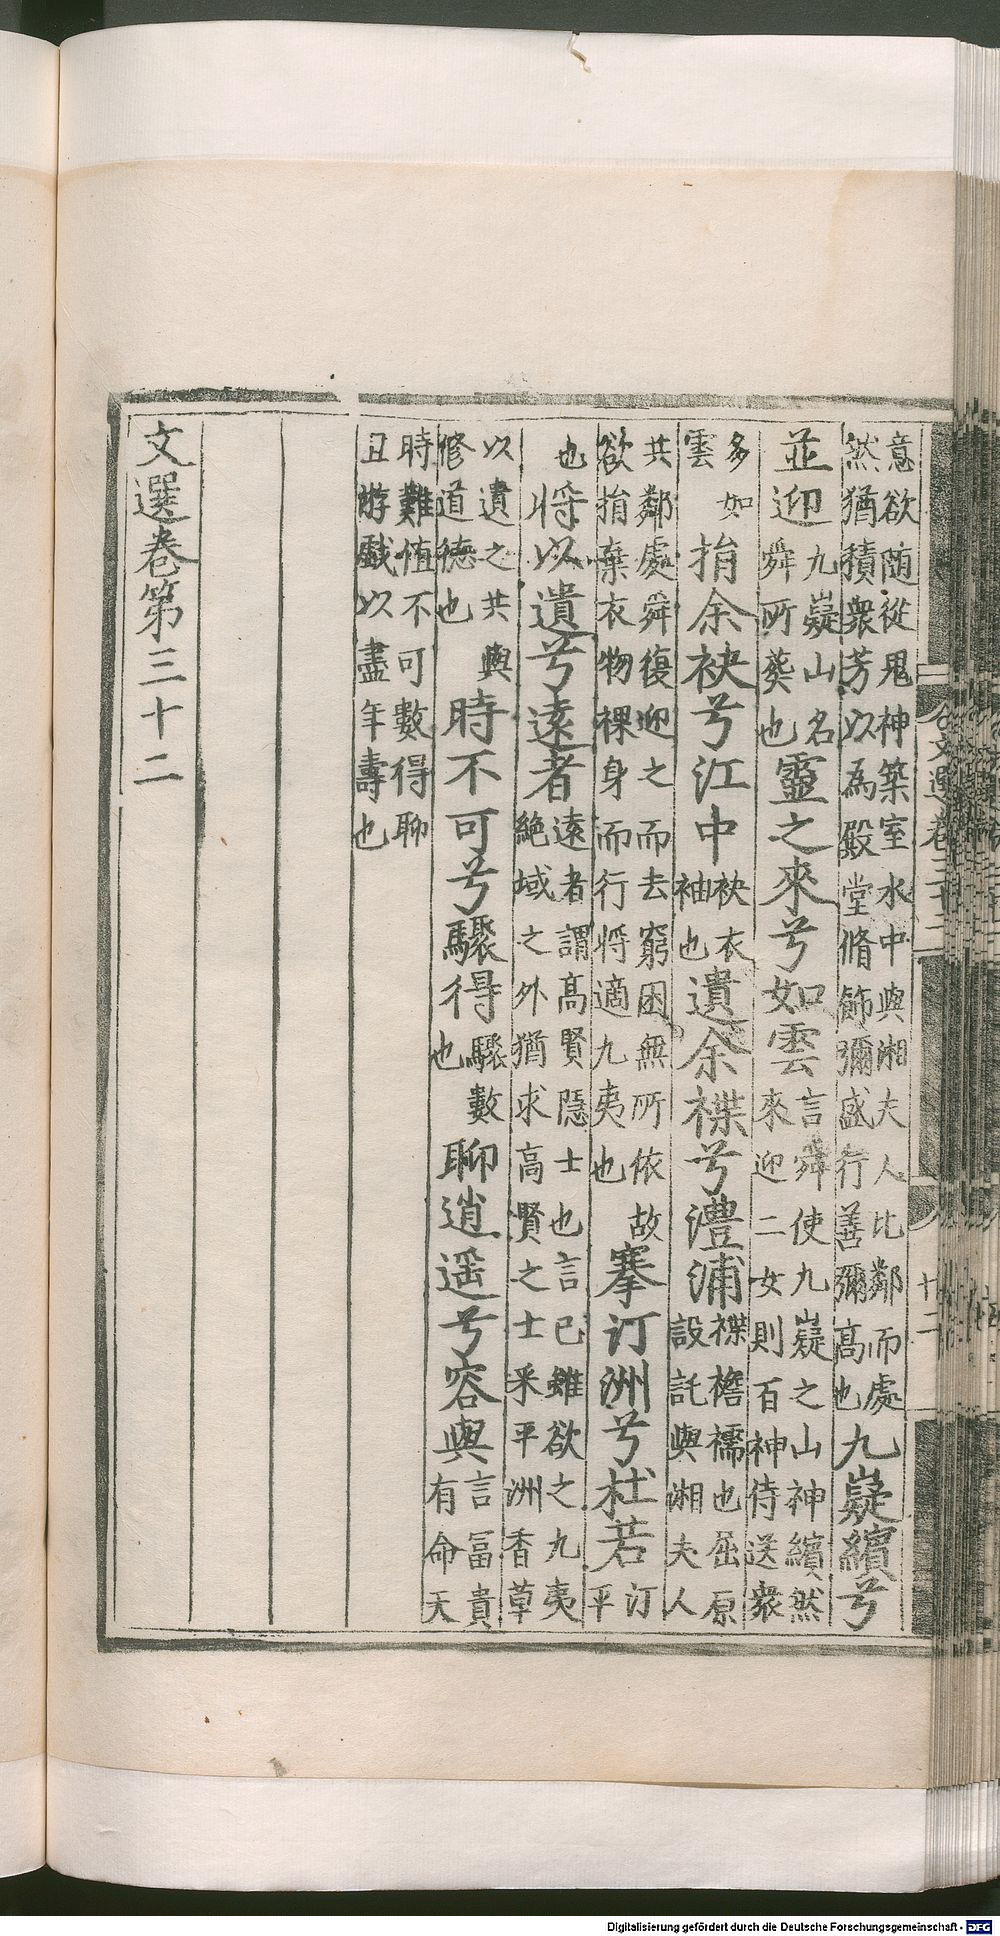 意欲随從鬼神築室水中與湘夫人比鄰而處然猶積衆芳以為殿堂脩飾彌盛行善彌高也九嶷繽兮
並迎九嶷山名舜所葵也靈之來兮如雲言舜使九嶷之山神繽然來迎二女則百神侍送衆
多如雲捐余袂兮江中袂衣袖也遺余褋兮澧浦褋襜襦也屈原設託與湘夫人
共鄰處舜復迎之而去窮困無所依故欲捐棄衣物裸身而行将適九夷也搴汀洲兮杜若汀平
也将以遺兮遠者遠者謂高賢隱士也言已雖欲之九夷絶域之外猶求高賢之士采平洲香草
以遺之共與修道德也時不可兮驟得驟數也聊逍遥兮容與言冨貴有命天
時難值不可數得聊且遊戲以盡年壽也
文選卷第三十二
文選卷三十二
十二
Digitalisierung gefördert durch die Deutsche Forschungsgemeinschaft - DFG